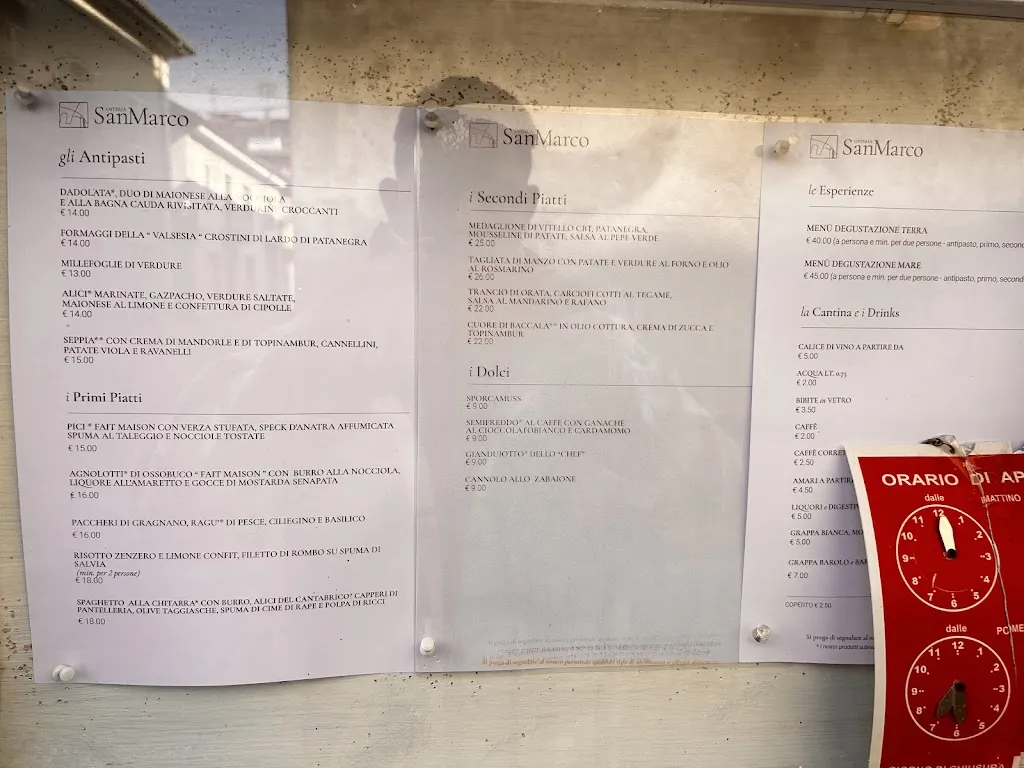 OSTERIA
SanMarco
gli Antipasti
DADOLATA*, DUO DI MAIONESE ALLA
E ALLA BAGNA CAUDA RIVISITATA, VERDURINE CROCCANTI
€ 14.00
FORMAGGI DELLA " VALSESIA " CROSTINI DI LARDO DI PATANEGRA
€ 14.00
MILLEFOGLIE DI VERDURE
€ 13.00
ALICI* MARINATE, GAZPACHO, VERDURE SALTATE,
MAIONESE AL LIMONE E CONFETTURA DI CIPOLLE
€ 14.00
SEPPIA** CON CREMA DI MANDORLE E DI TOPINAMBUR, CANNELLINI,
PATATE VIOLA E RAVANELLI
€ 15.00
i Primi Piatti
PICI * FAIT MAISON CON VERZA STUFATA, SPECK D'ANATRA AFFUMICATA
SPUMA AL TALEGGIO E NOCCIOLE TOSTATE
€ 15.00
AGNOLOTTI* DI OSSOBUCO " FAIT MAISON " CON BURRO ALLA NOCCIOLA,
LIQUORE ALL'AMARETTO E GOCCE DI MOSTARDA SENAPATA
€ 16.00
PACCHERI DI GRAGNANO, RAGU'* DI PESCE, CILIEGINO E BASILICO
€ 16.00
RISOTTO ZENZERO E LIMONE CONFIT, FILETTO DI ROMBO SU SPUMA DI
SALVIA
(min. per 2 persone)
€ 18.00
SPAGHETTO ALLA CHITARRA* CON BURRO, ALICI DEL CANTABRICO? CAPPERI DI
PANTELLERIA, OLIVE TAGGIASCHE, SPUMA DI CIME DI RAPE E POLPA DI RICCI
€ 18.00
OSTERIA
SanMarco
i Secondi Piatti
MEDAGLIONE DI VITELLO CBT, PATANEGRA,
MOUSSELINE DI PATATE, SALSA AL PEPE VERDE
€ 25.00
TAGLIATA DI MANZO CON PATATE E VERDURE AL FORNO E OLIO
AL ROSMARINO
€ 26.00
TRANCIO DI ORATA, CARCIOFI COTTI AL TEGAME,
SALSA AL MANDARINO E RAFANO
€ 22.00
CUORE DI BACCALA'** IN OLIO COTTURA, CREMA DI ZUCCA E
TOPINAMBUR
€ 22.00
i Dolci
SPORCAMUSS
€ 9.00
SEMIFREDDO* AL CAFFÈ CON GANACHE
AL CIOCCOLATOBIANCO E CARDAMOMO
€ 9.00
GIANDUIOTTO* DELLO "CHEF"
€ 9.00
CANNOLO ALLO ZABAIONE
€ 9.00
Si prega di segnalare al nostro personale
OSTERIA
SanMarco
le Esperienze
MENÙ DEGUSTAZIONE TERRA
€ 40.00 (a persona e min. per due persone - antipasto, primo, second
MENÙ DEGUSTAZIONE MARE
€ 45.00 (a persona e min. per due persone - antipasto, primo, second
la Cantina e i Drinks
CALICE DI VINO A PARTIRE DA
€ 5.00
ACQUA LT. 0.75
€ 2.00
BIBITE in VETRO
€ 3.50
CAFFÈ
€ 2.00
CAFFÈ CORRET
€ 2.50
AMARI A PARTIR
€ 4.50
LIQUORI e DIGESTIV
€ 5.00
GRAPPA BIANCA, MO
€ 5.00
GRAPPA BAROLO e BAR
€ 7.00
COPERTO € 2.50
Si prega di segnalare al
* i nostri prodotti
ORARIO DI AP
dalle MATTINO
12 1 2 3 4 5 6 7 8 9 10 11
dalle POME
12 1 2 3 4 5 6 7 8 9 10 11
GIORNO DI CHIUSURA